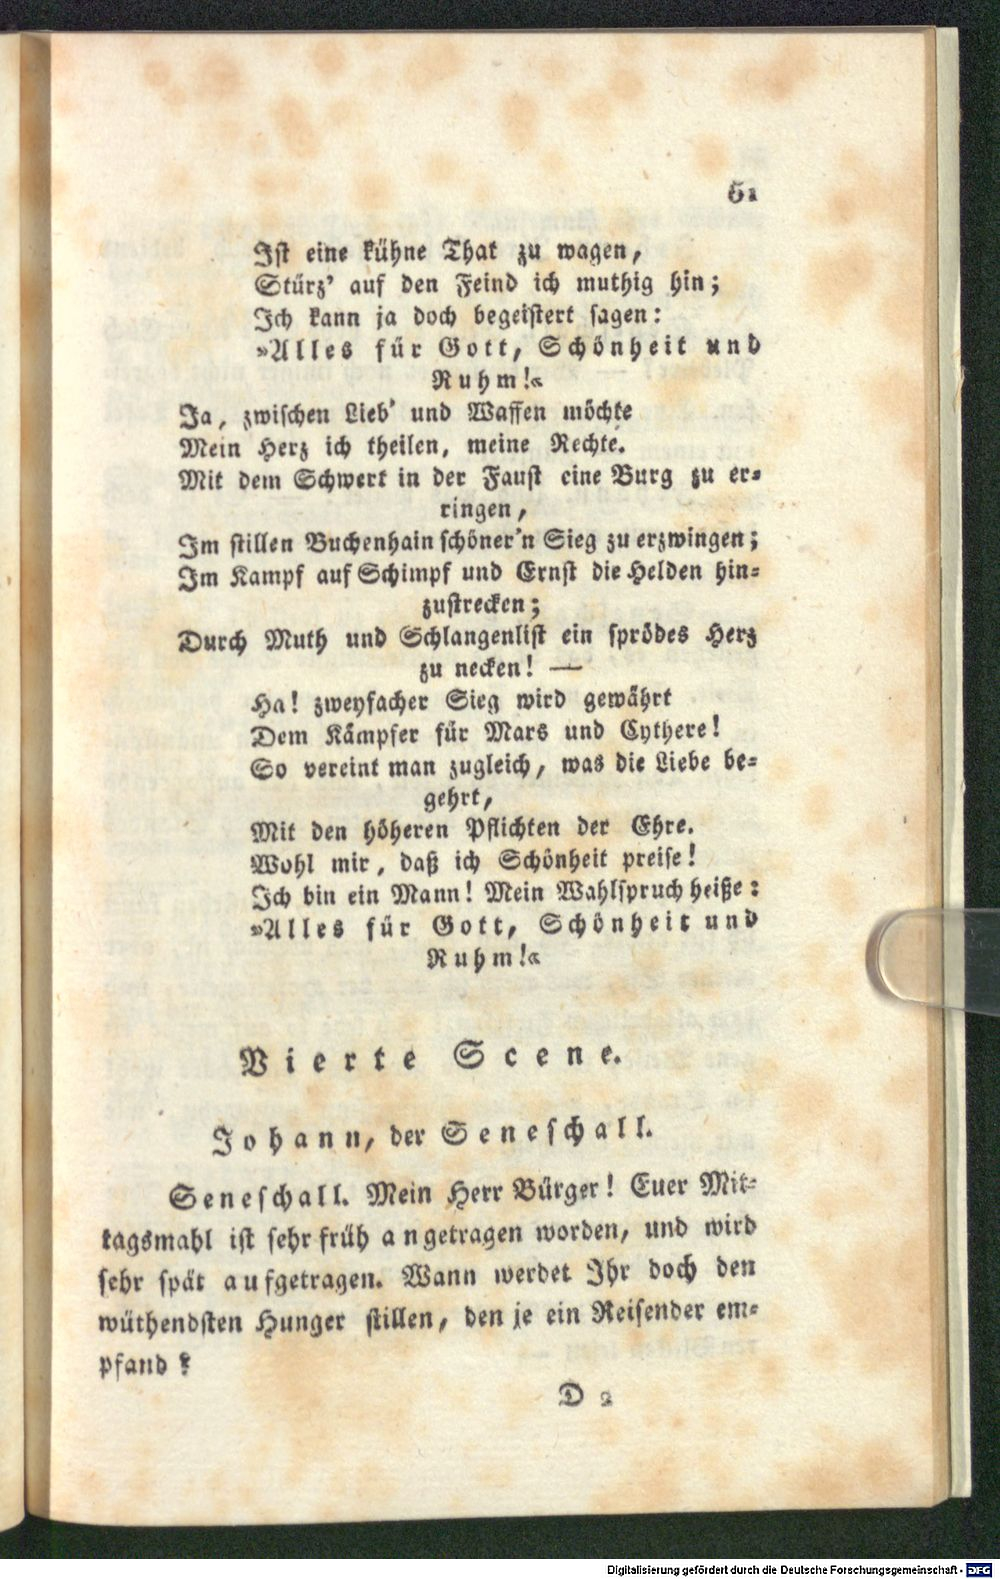 51
Ist eine kühne That zu wagen,
Stürz’ auf den Feind ich muthig hin;
Ich kann ja doch begeistert sagen:
»Alles für Gott, Schönheit und
Ruhm!«
Ja, zwischen Lieb’ und Waffen möchte
Mein Herz ich theilen, meine Rechte.
Mit dem Schwert in der Faust eine Burg zu er-
ringen,
Im stillen Buchenhain schöner’n Sieg zu erzwingen;
Im Kampf auf Schimpf und Ernst die Helden hin-
zustrecken;
Durch Muth und Schlangenlist ein sprödes Herz
zu necken! —
Ha! zweyfacher Sieg wird gewährt
Dem Kämpfer für Mars und Cythere!
So vereint man zugleich, was die Liebe be-
gehrt,
Mit den höheren Pflichten der Ehre.
Wohl mir, daß ich Schönheit preise!
Ich bin ein Mann! Mein Wahlspruch heiße:
»Alles für Gott, Schönheit und
Ruhm!«
Vierte Scene.
Johann, der Seneschall.
Seneschall. Mein Herr Bürger! Euer Mit-
tagsmahl ist sehr früh angetragen worden, und wird
sehr spät aufgetragen. Wann werdet Ihr doch den
wüthendsten Hunger stillen, den je ein Reisender em-
pfand?
D 2
Digitalisierung gefördert durch die Deutsche Forschungsgemeinschaft - DFG